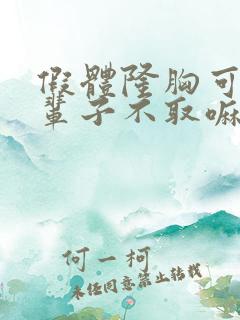 假體隆胸可
輩子不取嘛
何一柯
未经同意禁止转载